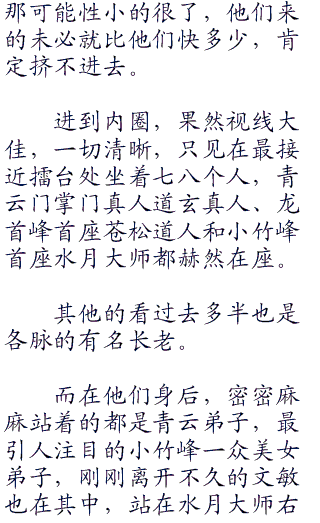 那可能性小的很了，他们来
的未必就比他们快多少，肯
定挤不进去。
进到内圈，果然视线大
佳，一切清晰，只见在最接
近擂台处坐着七八个人，青
云门掌门真人道玄真人、龙
首峰首座苍松道人和小竹峰
首座水月大师都赫然在座。
其他的看过去多半也是
各脉的有名长老。
而在他们身后，密密麻
麻站着的都是青云弟子，最
引人注目的小竹峰一众美女
弟子，刚刚离开不久的文敏
也在其中，站在水月大师右